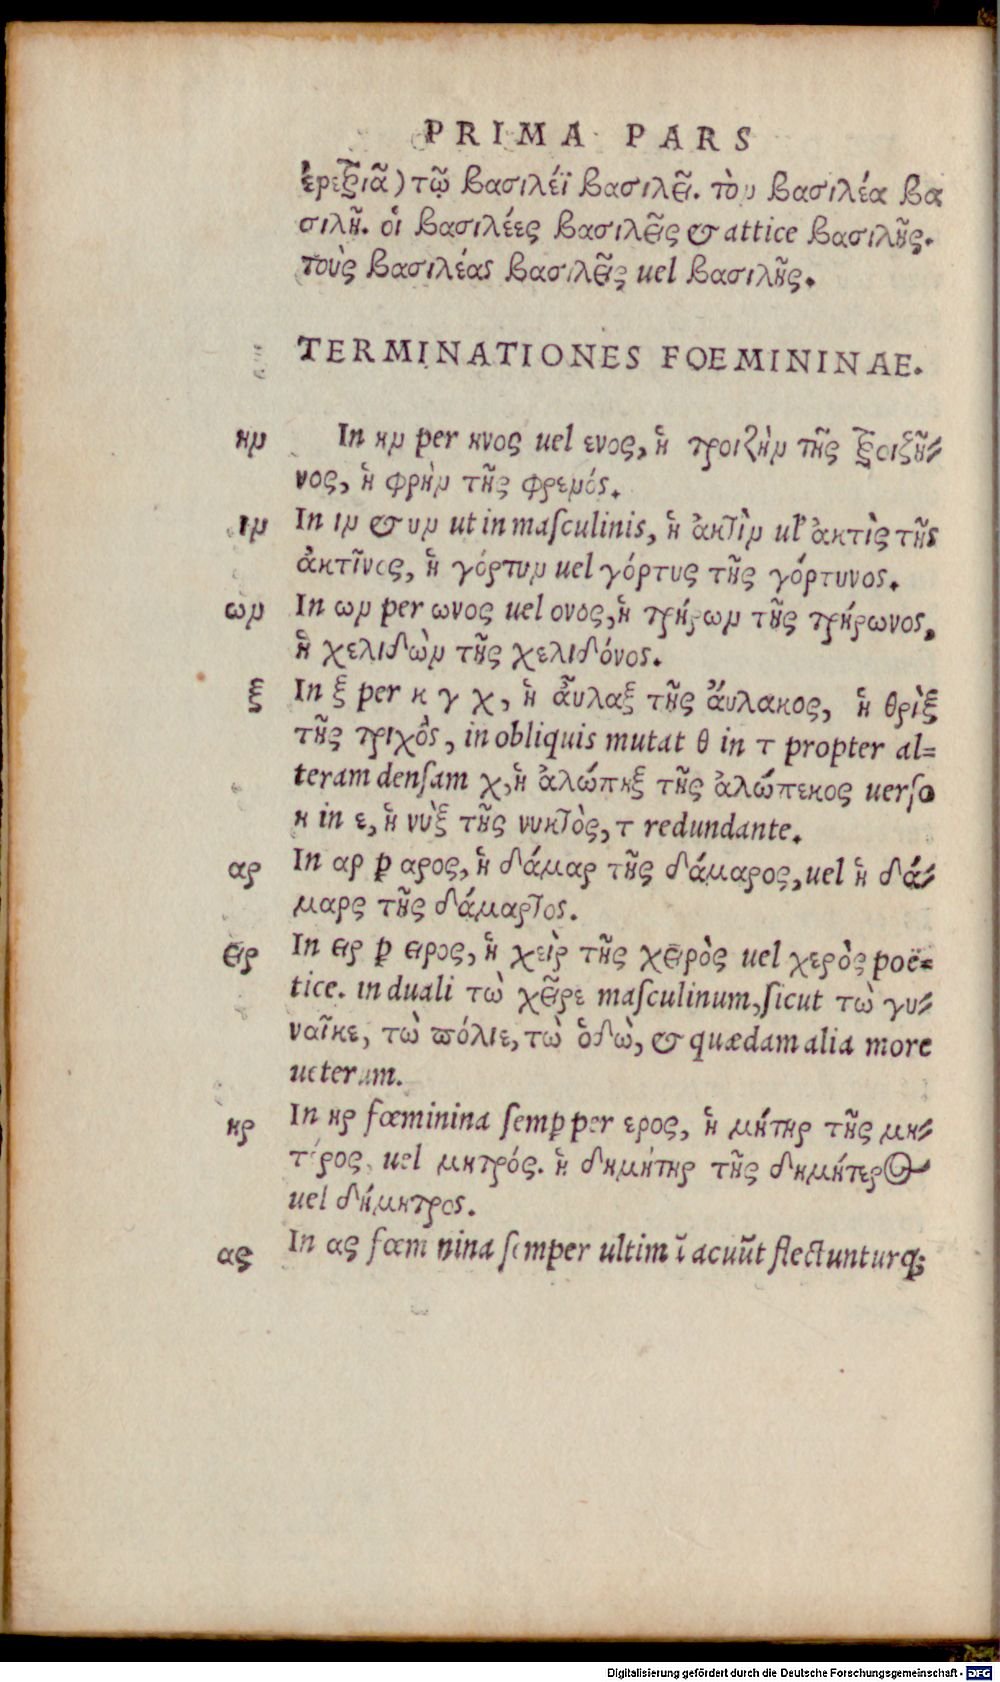 PRIMA PARS
τῷ βασιλέϊ βασιλεῖ. τὸν βασιλέα βα
σιλῆ. οἱ βασιλέες βασιλεῖς & attice βασιλῆς.
τοὺς βασιλέας βασιλεῖς uel βασιλῆς.
TERMINATIONES FOEMININAE.
ην In ην per ηνος uel ενος, ἡ τροιζὴν τῆς τροιζῆ-
νος, ἡ φρὴν τῆς φρενός.
ιν In ιν & υν ut in maſculinis, ἡ ἀκτὶν ul' ἀκτὶς τῆς
ἀκτῖνος, ἡ γόρτυν uel γόρτυς τῆς γόρτυνος.
ων In ων per ωνος uel ονος, ἡ τρήρων τῆς τρήρωνος,
ἡ χελιδὼν τῆς χελιδόνος.
ξ In ξ per κ γ χ, ἡ αὖλαξ τῆς ἄυλακος, ἡ θρὶξ
τῆς τριχὸς, in obliquis mutat θ in τ propter al=
teram denſam χ, ἡ ἀλώπηξ τῆς ἀλώπεκος uerſo
η in ε, ἡ νὺξ τῆς νυκτὸς, τ redundante.
αρ In αρ ꝑ αρος, ἡ δάμαρ τῆς δάμαρος, uel ἡ δά-
μαρς τῆς δάμαρτος.
ειρ In ειρ ꝑ ειρος, ἡ χεὶρ τῆς χειρὸς uel χερὸς poë=
tice. in duali τὼ χεῖρε maſculinum, ſicut τὼ γυ-
ναῖκε, τὼ πόλιε, τὼ ὁδὼ, & quædam alia more
ueterum.
ηρ In ηρ fœminina ſemꝑ per ερος, ἡ μήτηρ τῆς μη-
τέρος uel μητρός. ἡ δημήτηρ τῆς δημήτερος
uel δήμητρος.
ας In ας fœminina ſemper ultimā acuūt flectunturq;
Digitalisierung gefördert durch die Deutsche Forschungsgemeinschaft - DFG